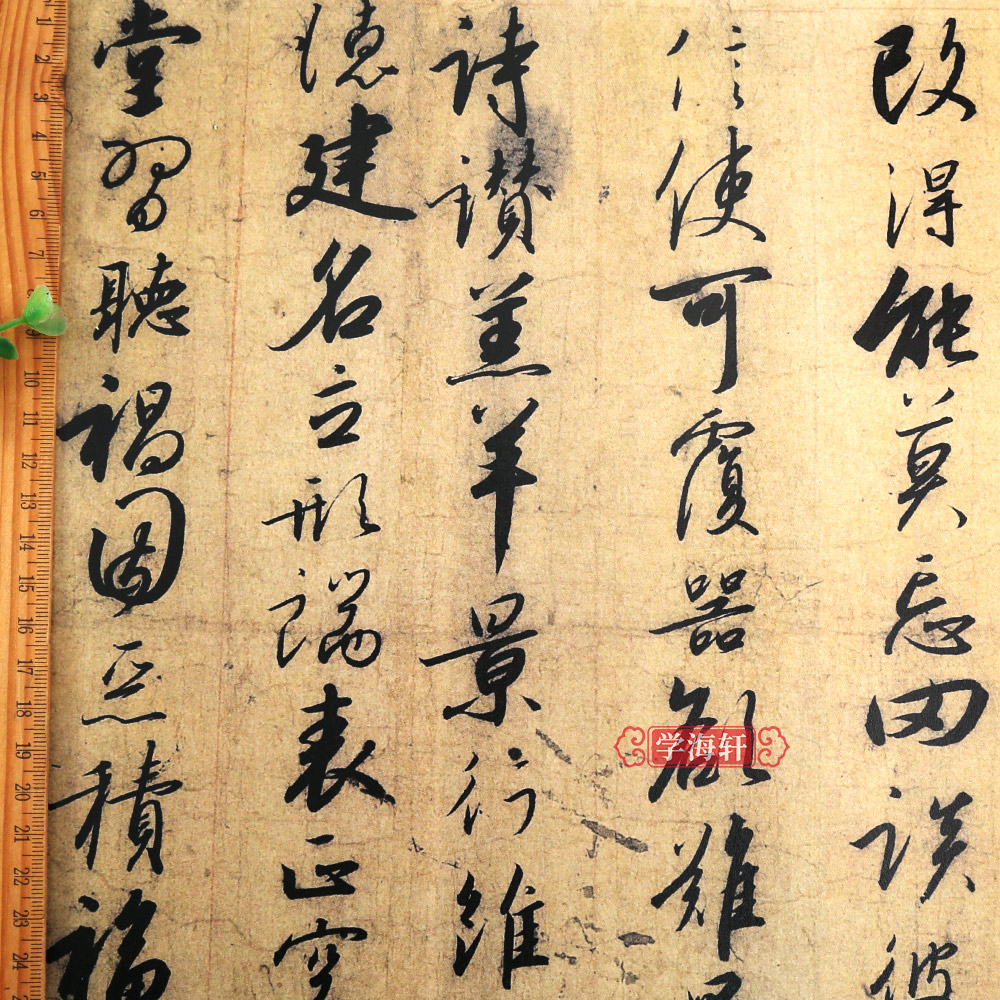 改得能莫忘罔談彼
信使可覆器欲難
詩讚羔羊景行維
德建名立形端表正空
堂習聽禍因惡積福
学海轩
1
2
3
4
5
6
7
9
10
11
12
13
14
15
16
17
18
19
20
21
22
23
24